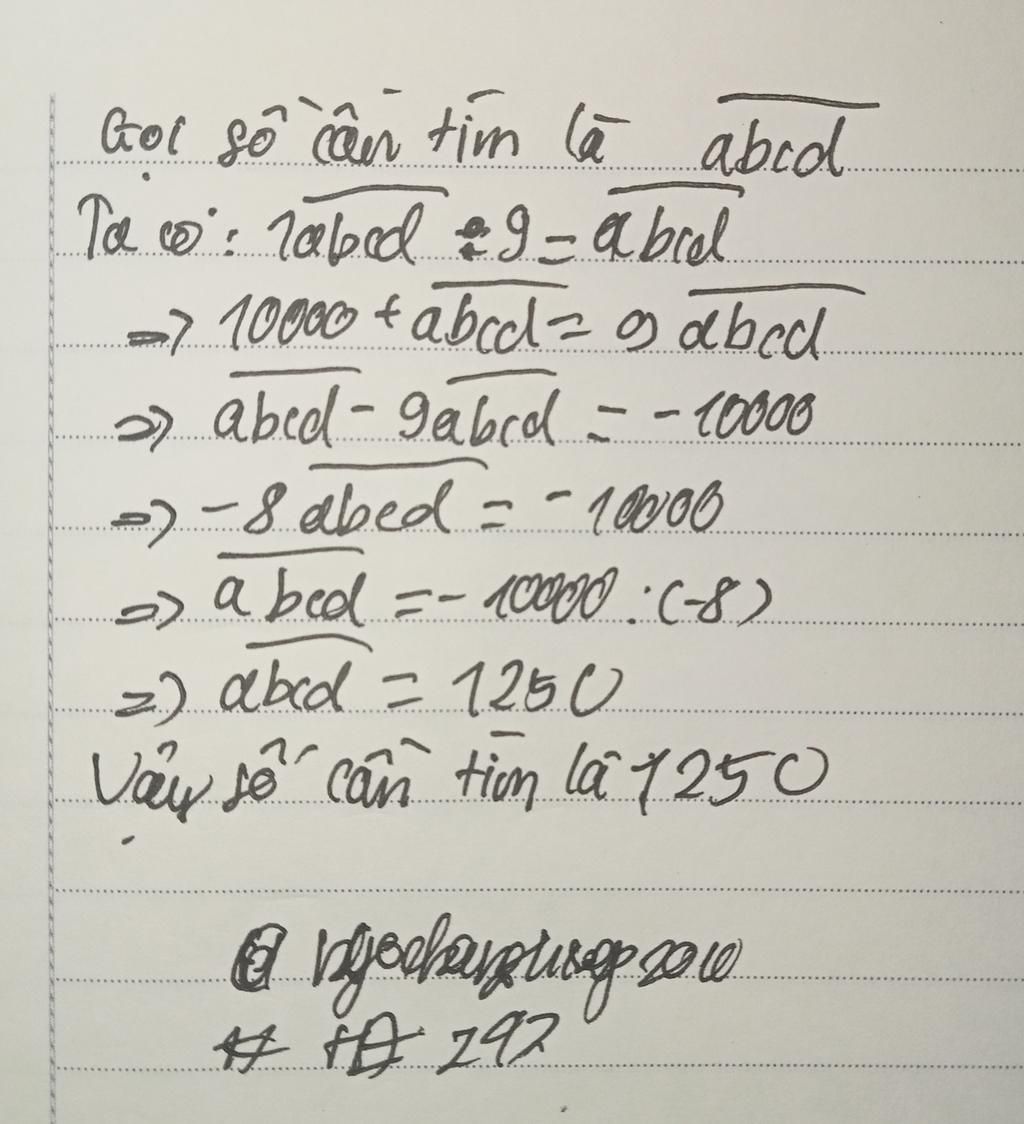 Gọi số cần tìm là abcd
Ta có: 1abcd : 9 = abcd
=> 10000 + abcd = 9 abcd
=> abcd - 9abcd = -10000
=> -8 abcd = -10000
=> abcd = -10000 : (-8)
=> abcd = 1250
Vậy số cần tìm là 1250
292